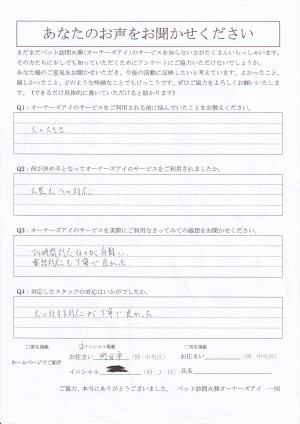 あなたのお声をお聞かせください
まだまだペット訪問火葬(オーナーズアイ)のサービスを知らない方がたくさんいらっしゃいます。
その方たちに少しでも知っていただくためにアンケートにご協力いただけないでしょうか。
あなた様のご意見をお聞かせいただき、今後の活動に反映したいと考えています。よかったこと、
嬉しかったこと、どのような些細なことでもけっこうです、ぜひご協力をよろしくお願いいたしま
す。(できるだけ具体的に書いていただけると助かります)
Q1:オーナーズアイのサービスをご利用される前に悩んでいたことをお教えください。
犬の大きさ
Q2:何が決め手となってオーナーズアイのサービスをご利用されましたか。
大型犬への対応
Q3:オーナーズアイのサービスを実際にご利用なさってみての感想をお聞かせください。
24時間対応なのが有難い。
電話対応も丁寧で良かった。
Q4:対応したスタッフの対応はいかがでしたか。
犬に対する対応が丁寧で良かった。
□匿名掲載 イニシャル掲載 □実名掲載
ホームページでご紹介
お住まい (例:中央区) お住まい (例:中央区)
イニシャル (例:J.O) 氏名
ご協力、本当にありがとうございました。 ペット訪問火葬オーナーズアイ 一同